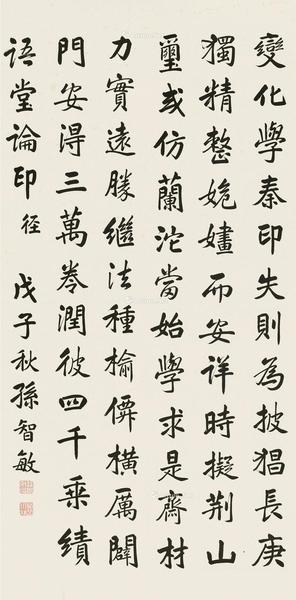 變化學秦印失則為披猖長庚
獨精整姽嫿而安詳時擬荆山
璽或仿蘭沱當始學求是齋材
力實遠勝繼法種榆僊橫厲闢
門安得三萬卷潤彼四千乘績
語堂論印 徑 戊子秋孫智敏